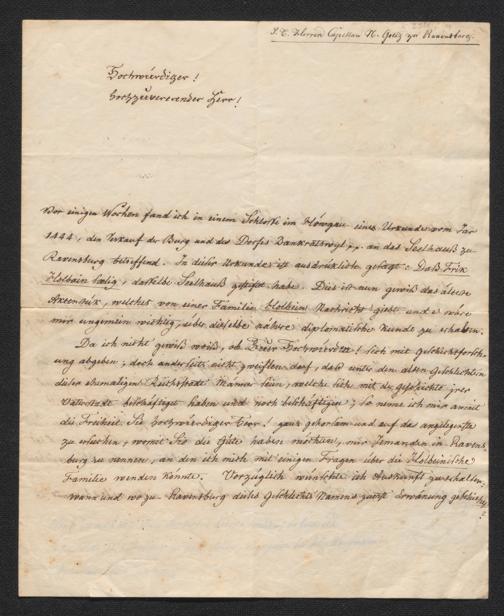 Herren Capellan N. zu Ravensburg.
Hochwürdiger!
Hochzuvererender Herr!
Vor einigen Wochen fand ich in einem Schlosse im Höwgau eine Urkunde vom Jar
1444, den Verkauf der Burg und des Dorfes Dankratsweyl, an das Seelhauß zu
Ravensburg betreffend. In dieser Urkunde ist ausdrücklich gesagt: Daß Frik
Holbain sælig, dasselbe Seelhauß gestift habe. Dies ist nun gewiß das älteste
welches von einer Familie Holbein Nachricht giebt und es wäre
mir ungemein wichtig, über dieselbe nähere diplomatische Kunde zu erhalten.
Da ich nicht gewiß weiß, ob Euer Hochwürden sich mit Geschichtsforsch-
ung abgeben; doch anderseits nicht zweiflen darf, daß unter den Geistlichen
dieser ehemaligen Reichsstadt Männer seien, welche sich mit der Geschichte irer
Vaterstadt beschäftiget haben und noch beschäftigen; So neme ich mir anmit
die Freiheit, Sie Hochwürdiger Herr! ganz gehorsam und auf das angelegenste
zu ersuchen, womit Sie die Güte haben möchten, mir Jemanden in Ravens-
burg zu nennen, an den ich mich mit einigen Fragen über die Holbeinische
Familie wenden könnte. Vorzüglich wünschte ich Auskunft zu erhalten,
wann und wo zu Ravensburg dieses Geschlechts Namens zuerst Erwänung geschieht?